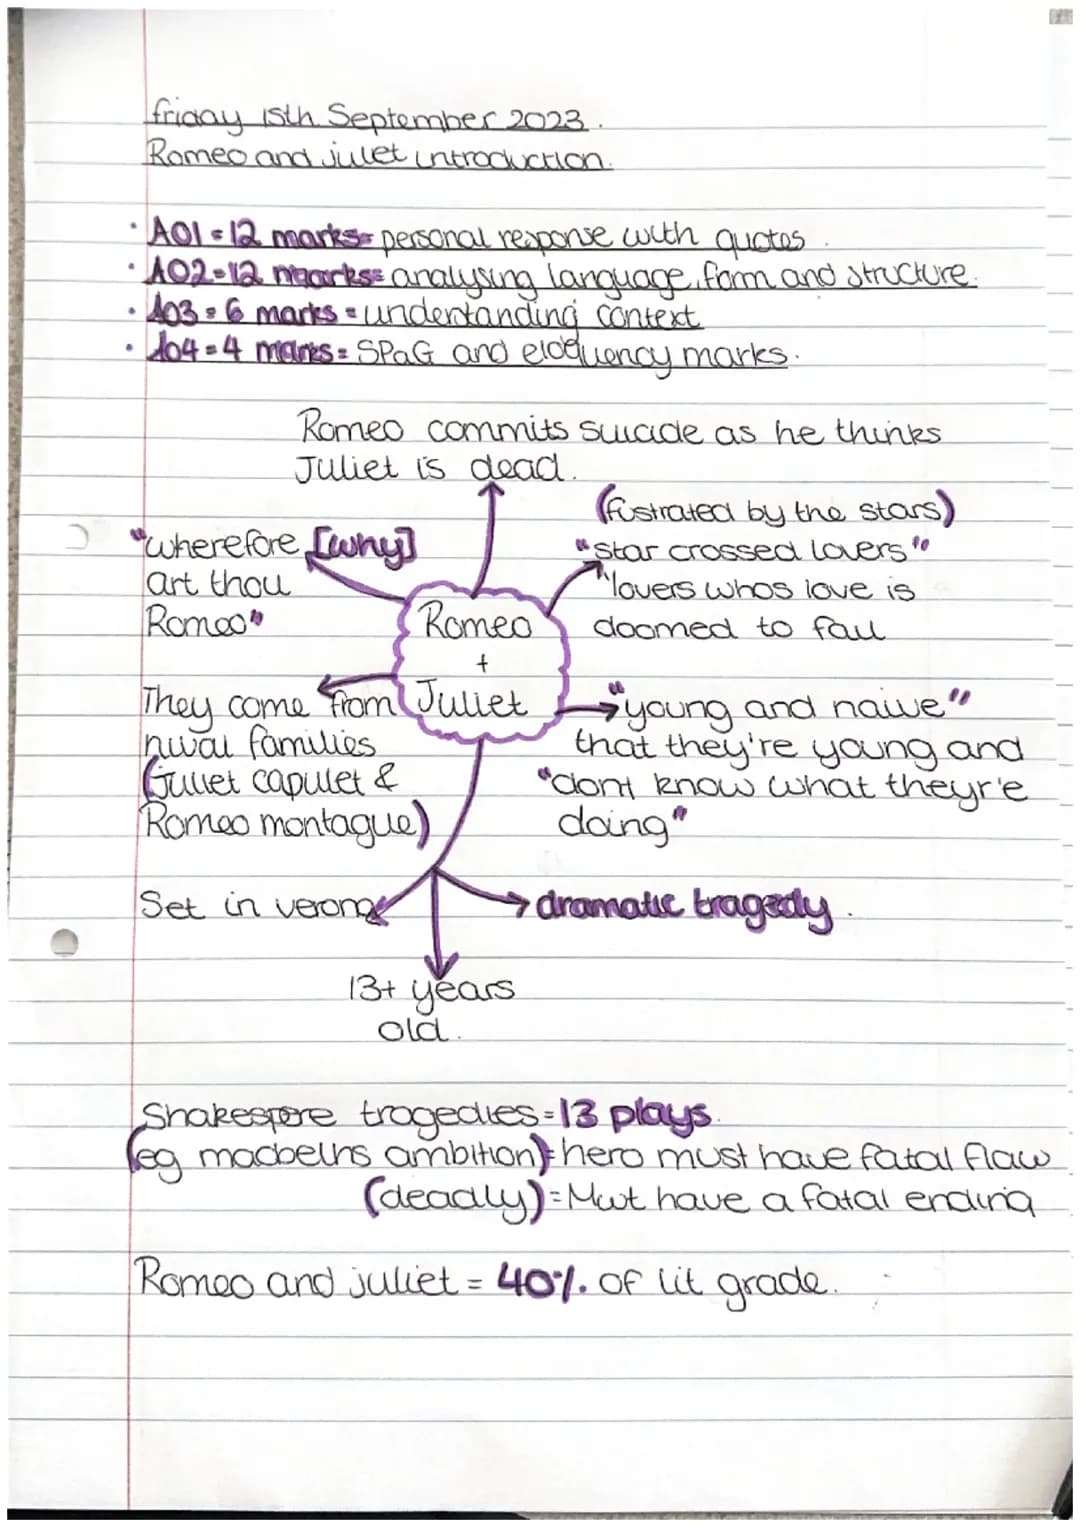 friday 15th September 2023.
Romeo and julet introduction.
· AO1 = 12 marks = personal response with quotes.
· AO2 = 12 maarks = analysing language, form and structure.
· AO3 = 6 marks = understanding context
· AO4 = 4 marks = SPaG and eloquency marks.
Romeo commits suicide as he thinks
Juliet is dead.
(fustrated by the stars)
"star crossed lovers"
"lovers whos love is
doomed to fail
"wherefore [why]
art thou
Romeo"
Romeo
+
Juliet
They come from
rival families
(Juliet capulet &
Romeo montague)
"young and naive"
that they're young and
"dont know what theyr'e
doing"
Set in verona
dramatic tragedy.
13+ years
old.
Shakespere tragedies = 13 plays.
(eg macbeths ambition) = hero must have fatal flaw
(deadly) = Must have a fatal ending
Romeo and juliet = 40% of lit grade.